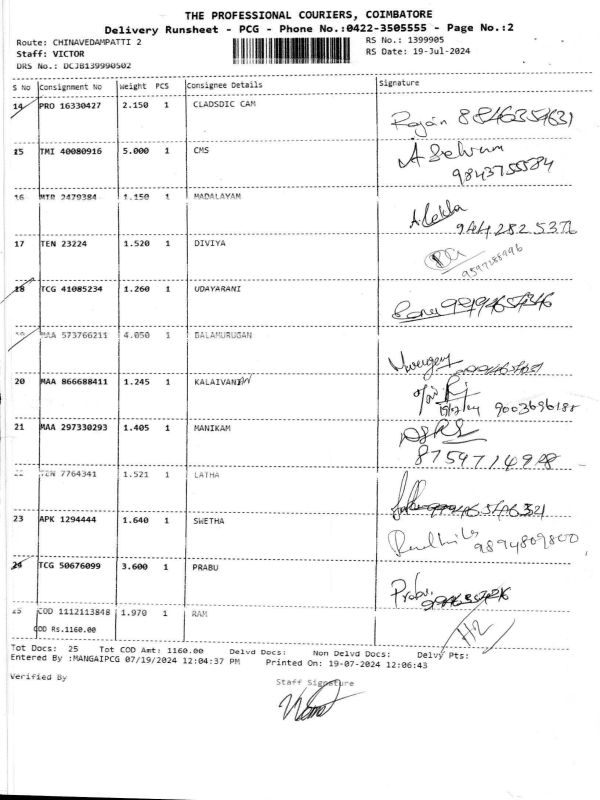 THE PROFESSIONAL COURIERS, COIMBATORE
Delivery Runsheet - PCG - Phone No.:0422-3505555 - Page No.:2
Route: CHINAVEDAMPATTI 2 RS No.: 1399905
Staff: VICTOR RS Date: 19-Jul-2024
DRS No.: DCJB139990502
S No Consignment No Weight PCS Consignee Details Signature
14 PRO 16330427 2.150 1 CLADSDIC CAM
Rajan
15 TMI 40080916 5.000 1 CMS
A Selvam
9843755584
16 MTR 2479384 1.150 1 MADALAYAM
9442825376
17 TEN 23224 1.520 1 DIVIYA
18 TCG 41085234 1.260 1 UDAYARANI
19 MAA 573766211 4.050 1 BALAMURUGAN
20 MAA 866688411 1.245 1 KALAIVANI
19/07/24 9003696188
21 MAA 297330293 1.405 1 MANIKAM
8759714928
22 TEN 7764341 1.521 1 LATHA
23 APK 1294444 1.640 1 SWETHA
9894809800
24 TCG 50676099 3.600 1 PRABU
Prabu
25 COD 1112113848 1.970 1 RAM
COD Rs.1160.00
H2
Tot Docs: 25 Tot COD Amt: 1160.00 Delvd Docs: Non Delvd Docs: Delvy Pts:
Entered By :MANGAIPCG 07/19/2024 12:04:37 PM Printed On: 19-07-2024 12:06:43
Verified By Staff Signature